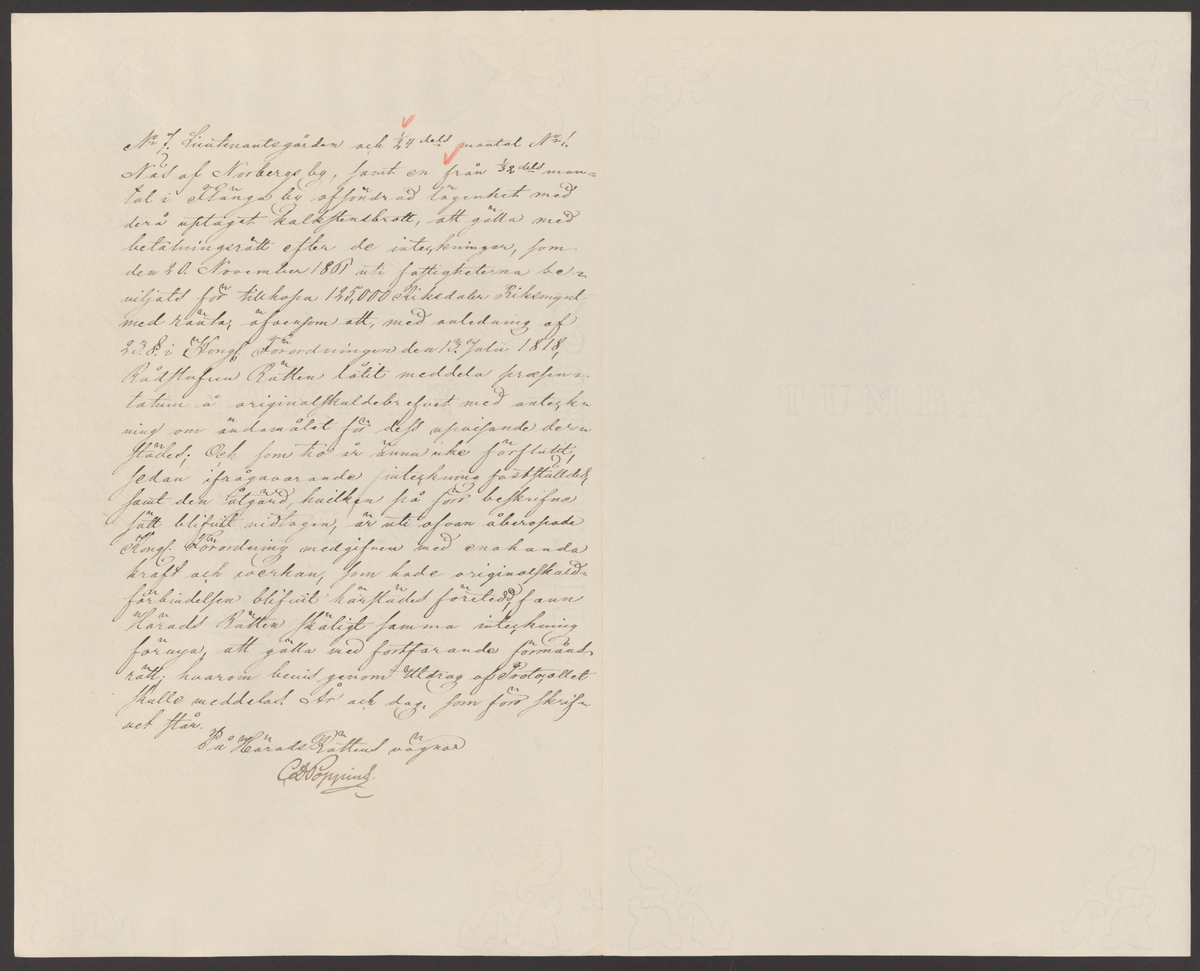 No 7. Lieutenantsgården och 1/24 dels mantal No 1.
Näs af Norbergs by, samt en från 1/32 dels man=
tal i Klånga by afsöndrad lägenhet med
derå uptaget kalkstensbrott, att gälla med
betalningsrätt efter de inteckningar, som
den 20. November 1861 uti fastigheterna be=
viljats för tillhopa 125,000 Riksdaler Riksmynt
med ränta, äfvensom att, med anledning af
23. §. i Kongl. Förordningen den 13. Julii 1818,
Rådstufvu Rätten låtit meddela præsen=
tatum å originalskuldebrefvet med anteck=
ning om ändamålet för dess upvisande der=
städes; Och som tio år ännu icke förflutit,
sedan ifrågavarande inteckning fastställdes,
samt den åtgärd, hvilken på förr beskrifne
sätt blifvit vidtagen, är uti ofvan åberopade
Kongl. Förordning medgifven med enahanda
kraft och verkan, som hade originalskuld=
förbindelsen blifvit härstädes företedd, fann
Härads Rätten skäligt samma inteckning
förnya, att gälla med fortfarande förmåns=
rätt; hvarom bevis genom Utdrag af Protocollet
skulle meddelas. År och dag, som förr skrif=
vet står.
På Härads Rättens vägnar
CD Poppius.